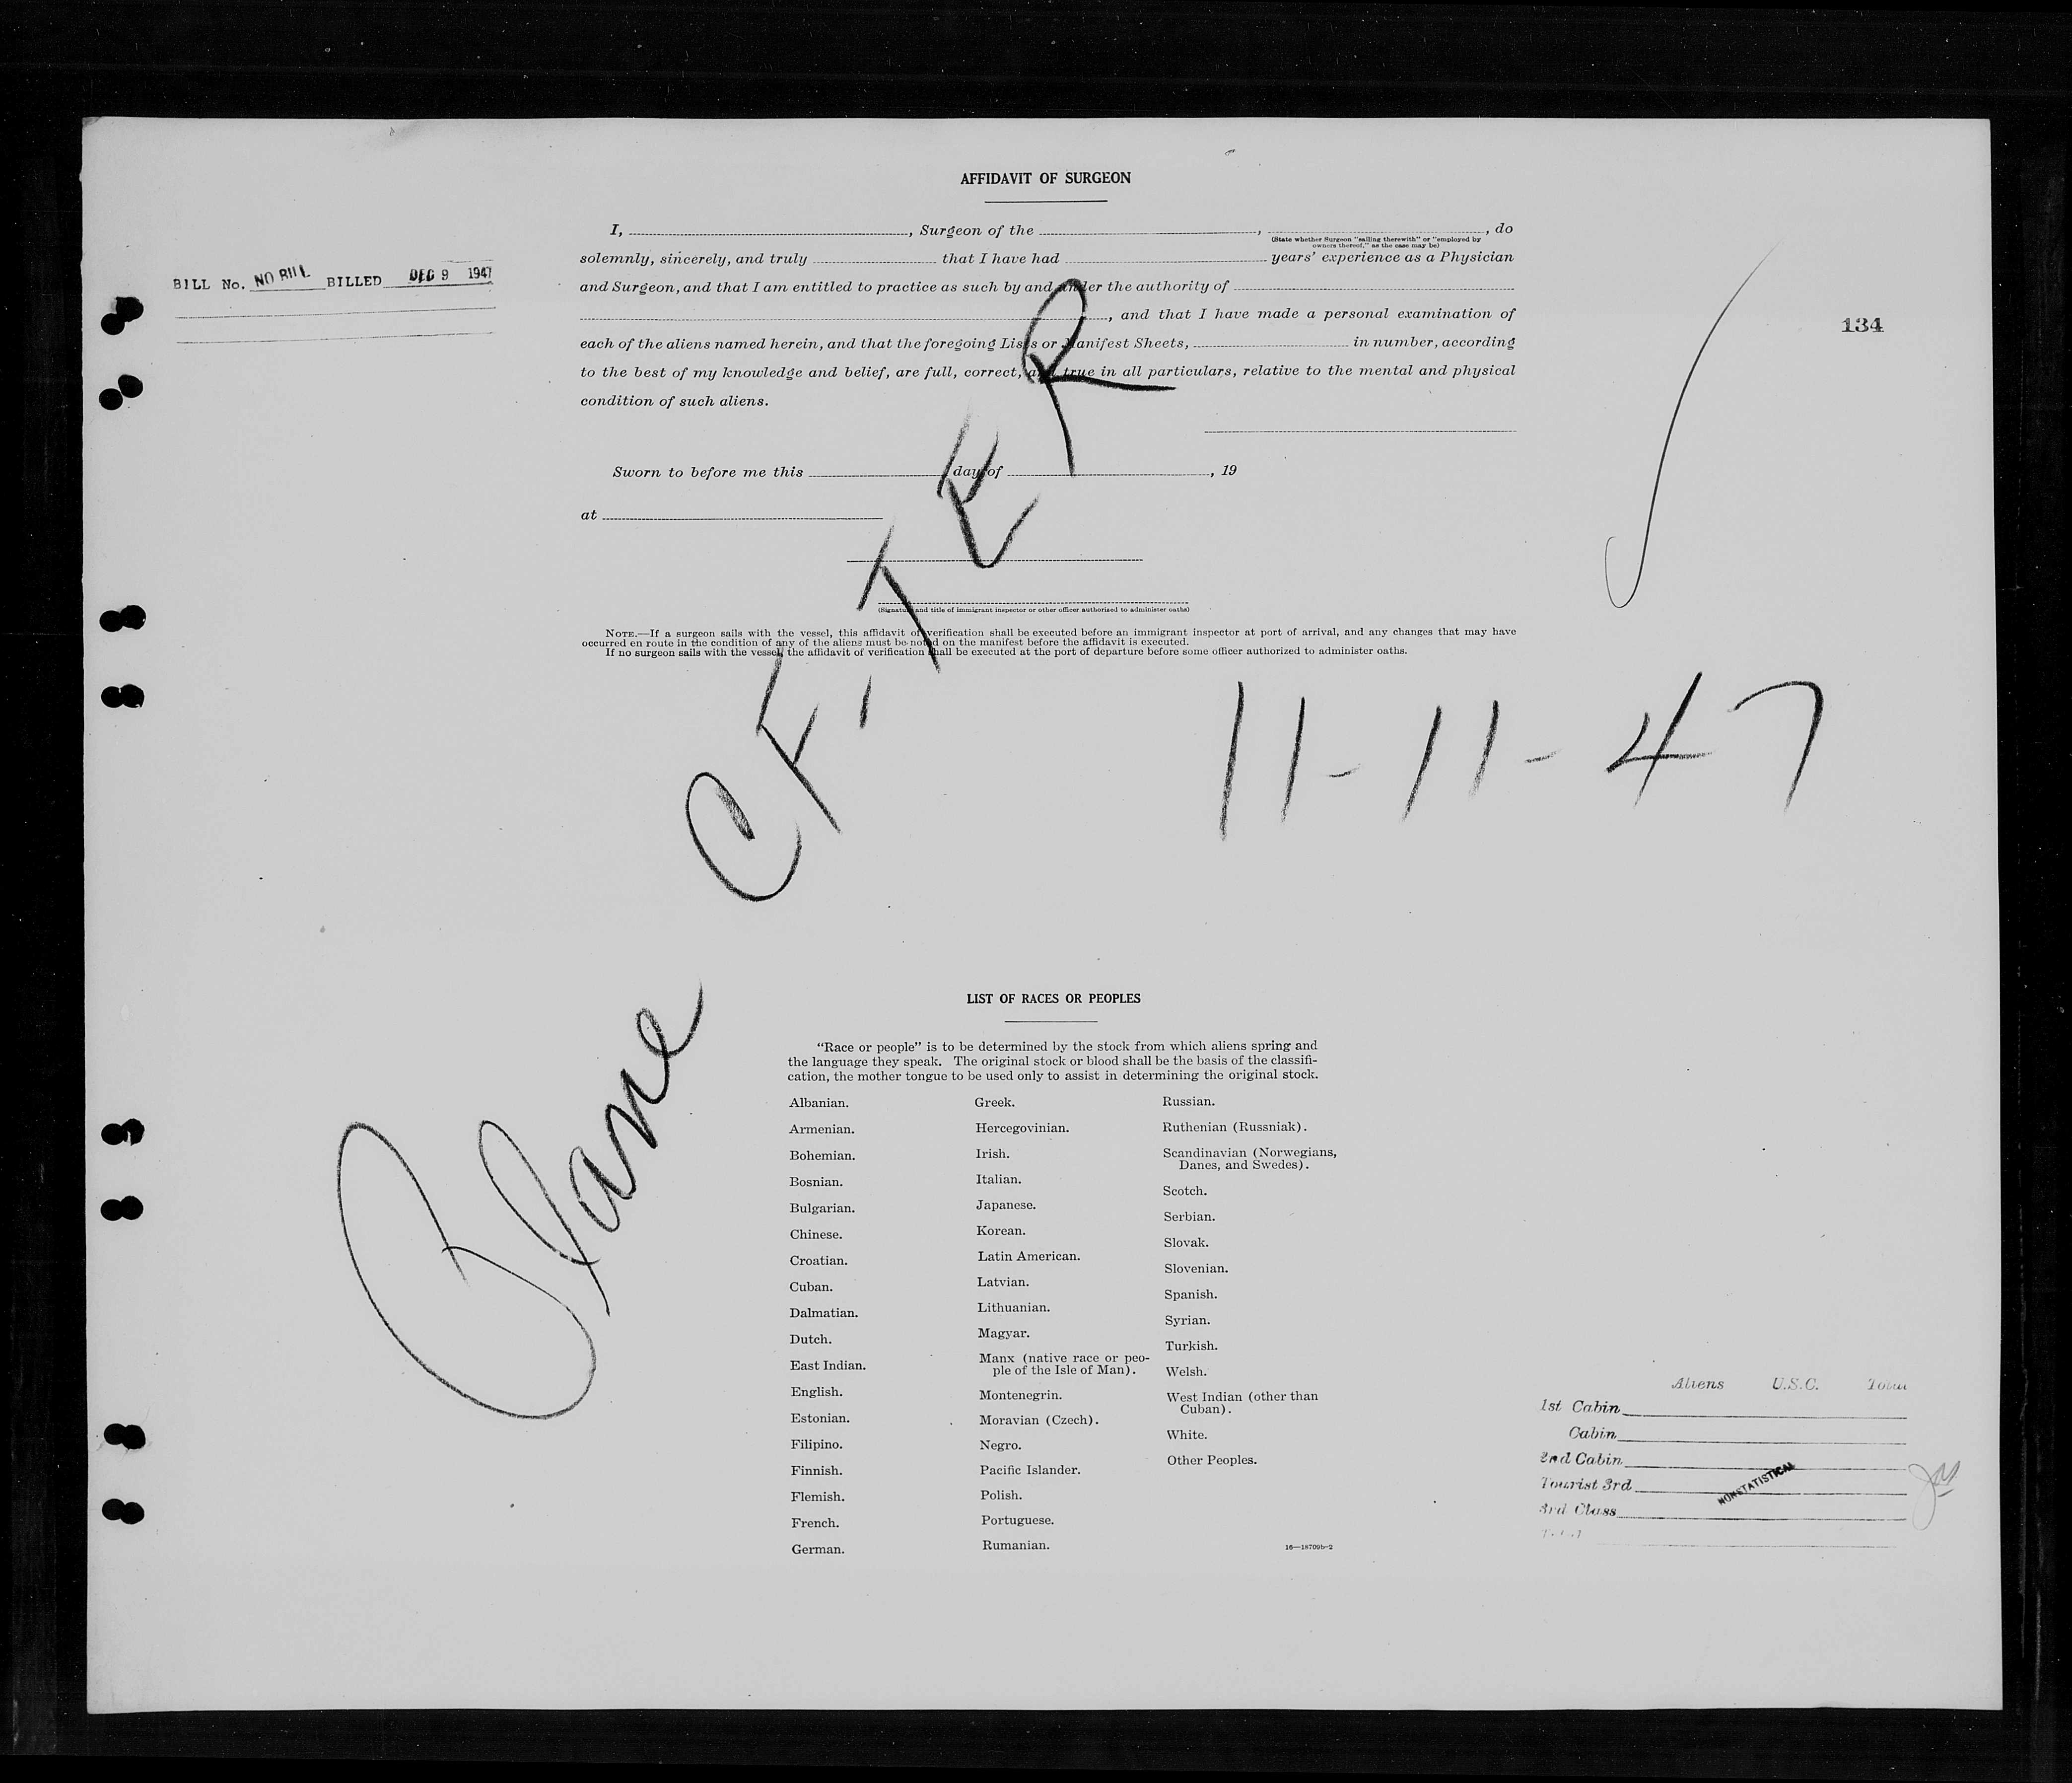 AFFIDAVIT OF SURGEON
I, , Surgeon of the , , do
(State whether Surgeon "sailing therewith" or "employed by
owners thereof," as the case may be)
solemnly, sincerely, and truly that I have had years' experience as a Physician
and Surgeon, and that I am entitled to practice as such by and under the authority of
, and that I have made a personal examination of
each of the aliens named herein, and that the foregoing Lists or Manifest Sheets, in number, according
to the best of my knowledge and belief, are full, correct, and true in all particulars, relative to the mental and physical
condition of such aliens.
BILL No. NO BILL BILLED DEC 9 1947
134
Sworn to before me this day of , 19
at
(Signature and title of immigrant inspector or other officer authorized to administer oaths)
NOTE.—If a surgeon sails with the vessel, this affidavit of verification shall be executed before an immigrant inspector at port of arrival, and any changes that may have
occurred en route in the condition of any of the aliens must be noted on the manifest before the affidavit is executed.
If no surgeon sails with the vessel, the affidavit of verification shall be executed at the port of departure before some officer authorized to administer oaths.
CF-TER
11-11-47
LIST OF RACES OR PEOPLES
"Race or people" is to be determined by the stock from which aliens spring and
the language they speak. The original stock or blood shall be the basis of the classifi-
cation, the mother tongue to be used only to assist in determining the original stock.
Albanian.
Armenian.
Bohemian.
Bosnian.
Bulgarian.
Chinese.
Croatian.
Cuban.
Dalmatian.
Dutch.
East Indian.
English.
Estonian.
Filipino.
Finnish.
Flemish.
French.
German.
Greek.
Hercegovinian.
Irish.
Italian.
Japanese.
Korean.
Latin American.
Latvian.
Lithuanian.
Magyar.
Manx (native race or peo-
ple of the Isle of Man).
Montenegrin.
Moravian (Czech).
Negro.
Pacific Islander.
Polish.
Portuguese.
Rumanian.
Russian.
Ruthenian (Russniak).
Scandinavian (Norwegians,
Danes, and Swedes).
Scotch.
Serbian.
Slovak.
Slovenian.
Spanish.
Syrian.
Turkish.
Welsh.
West Indian (other than
Cuban).
White.
Other Peoples.
16—18709b-2
Aliens U.S.C. Total
1st Cabin
Cabin
2nd Cabin
Tourist 3rd
3rd Class
Total
NONSTATISTICAL